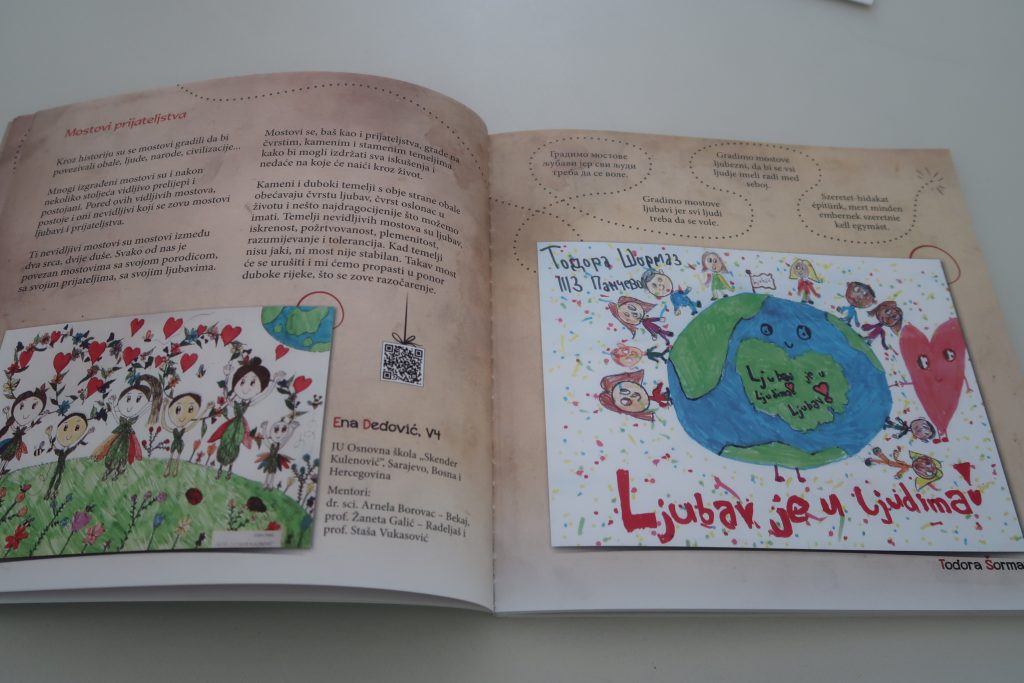 Mostovi prijateljstva
Kroz historiju su se mostovi gradili da bi
povezivali obale, ljude, narode, civilizacije...
Mnogi izgrađeni mostovi su i nakon
nekoliko stoljeća vidljivo prelijepi i
postojani. Pored ovih vidljivih mostova,
postoje i oni nevidljivi koji se zovu mostovi
ljubavi i prijateljstva.
Ti nevidljivi mostovi su mostovi između
dva srca, dvije duše. Svako od nas je
povezan mostovima sa svojom porodicom,
sa svojim prijateljima, sa svojim ljubavima.
Mostovi se, baš kao i prijateljstva, grade na
čvrstim, kamenim i stamenim temeljima
kako bi mogli izdržati sva iskušenja i
nedaće na koje će naići kroz život.
Kameni i duboki temelji s obje strane obale
obećavaju čvrstu ljubav, čvrst oslonac u
životu i nešto najdragocijenije što možemo
imati. Temelji nevidljivih mostova su ljubav,
iskrenost, požrtvovanost, plemenitost,
razumijevanje i tolerancija. Kad temelji
nisu jaki, ni most nije stabilan. Takav most
će se urušiti i mi ćemo propasti u ponor
duboke rijeke, što se zove razočarenje.
Ena Dedović, V4
JU Osnovna škola „Skender
Kulenović”, Sarajevo, Bosna i
Hercegovina
Mentori:
dr. sci. Arnela Borovac – Bekaj,
prof. Žaneta Galić – Radeljaš i
prof. Staša Vukasović
Градимо мостове
љубави јер сви људи
треба да се воле.
Gradimo mostove
ljubezni, da bi se vsi
ljudje imeli radi med
seboj.
Gradimo mostove
ljubavi jer svi ljudi
treba da se vole.
Szeretet-hidakat
építünk, mert minden
embernek szeretnie
kell egymást.
Тодора Шормаз
III3 Панчево
Ljubav je u
ljudima
Ljubav
Ljubav je u ljudima
Todora Šorma